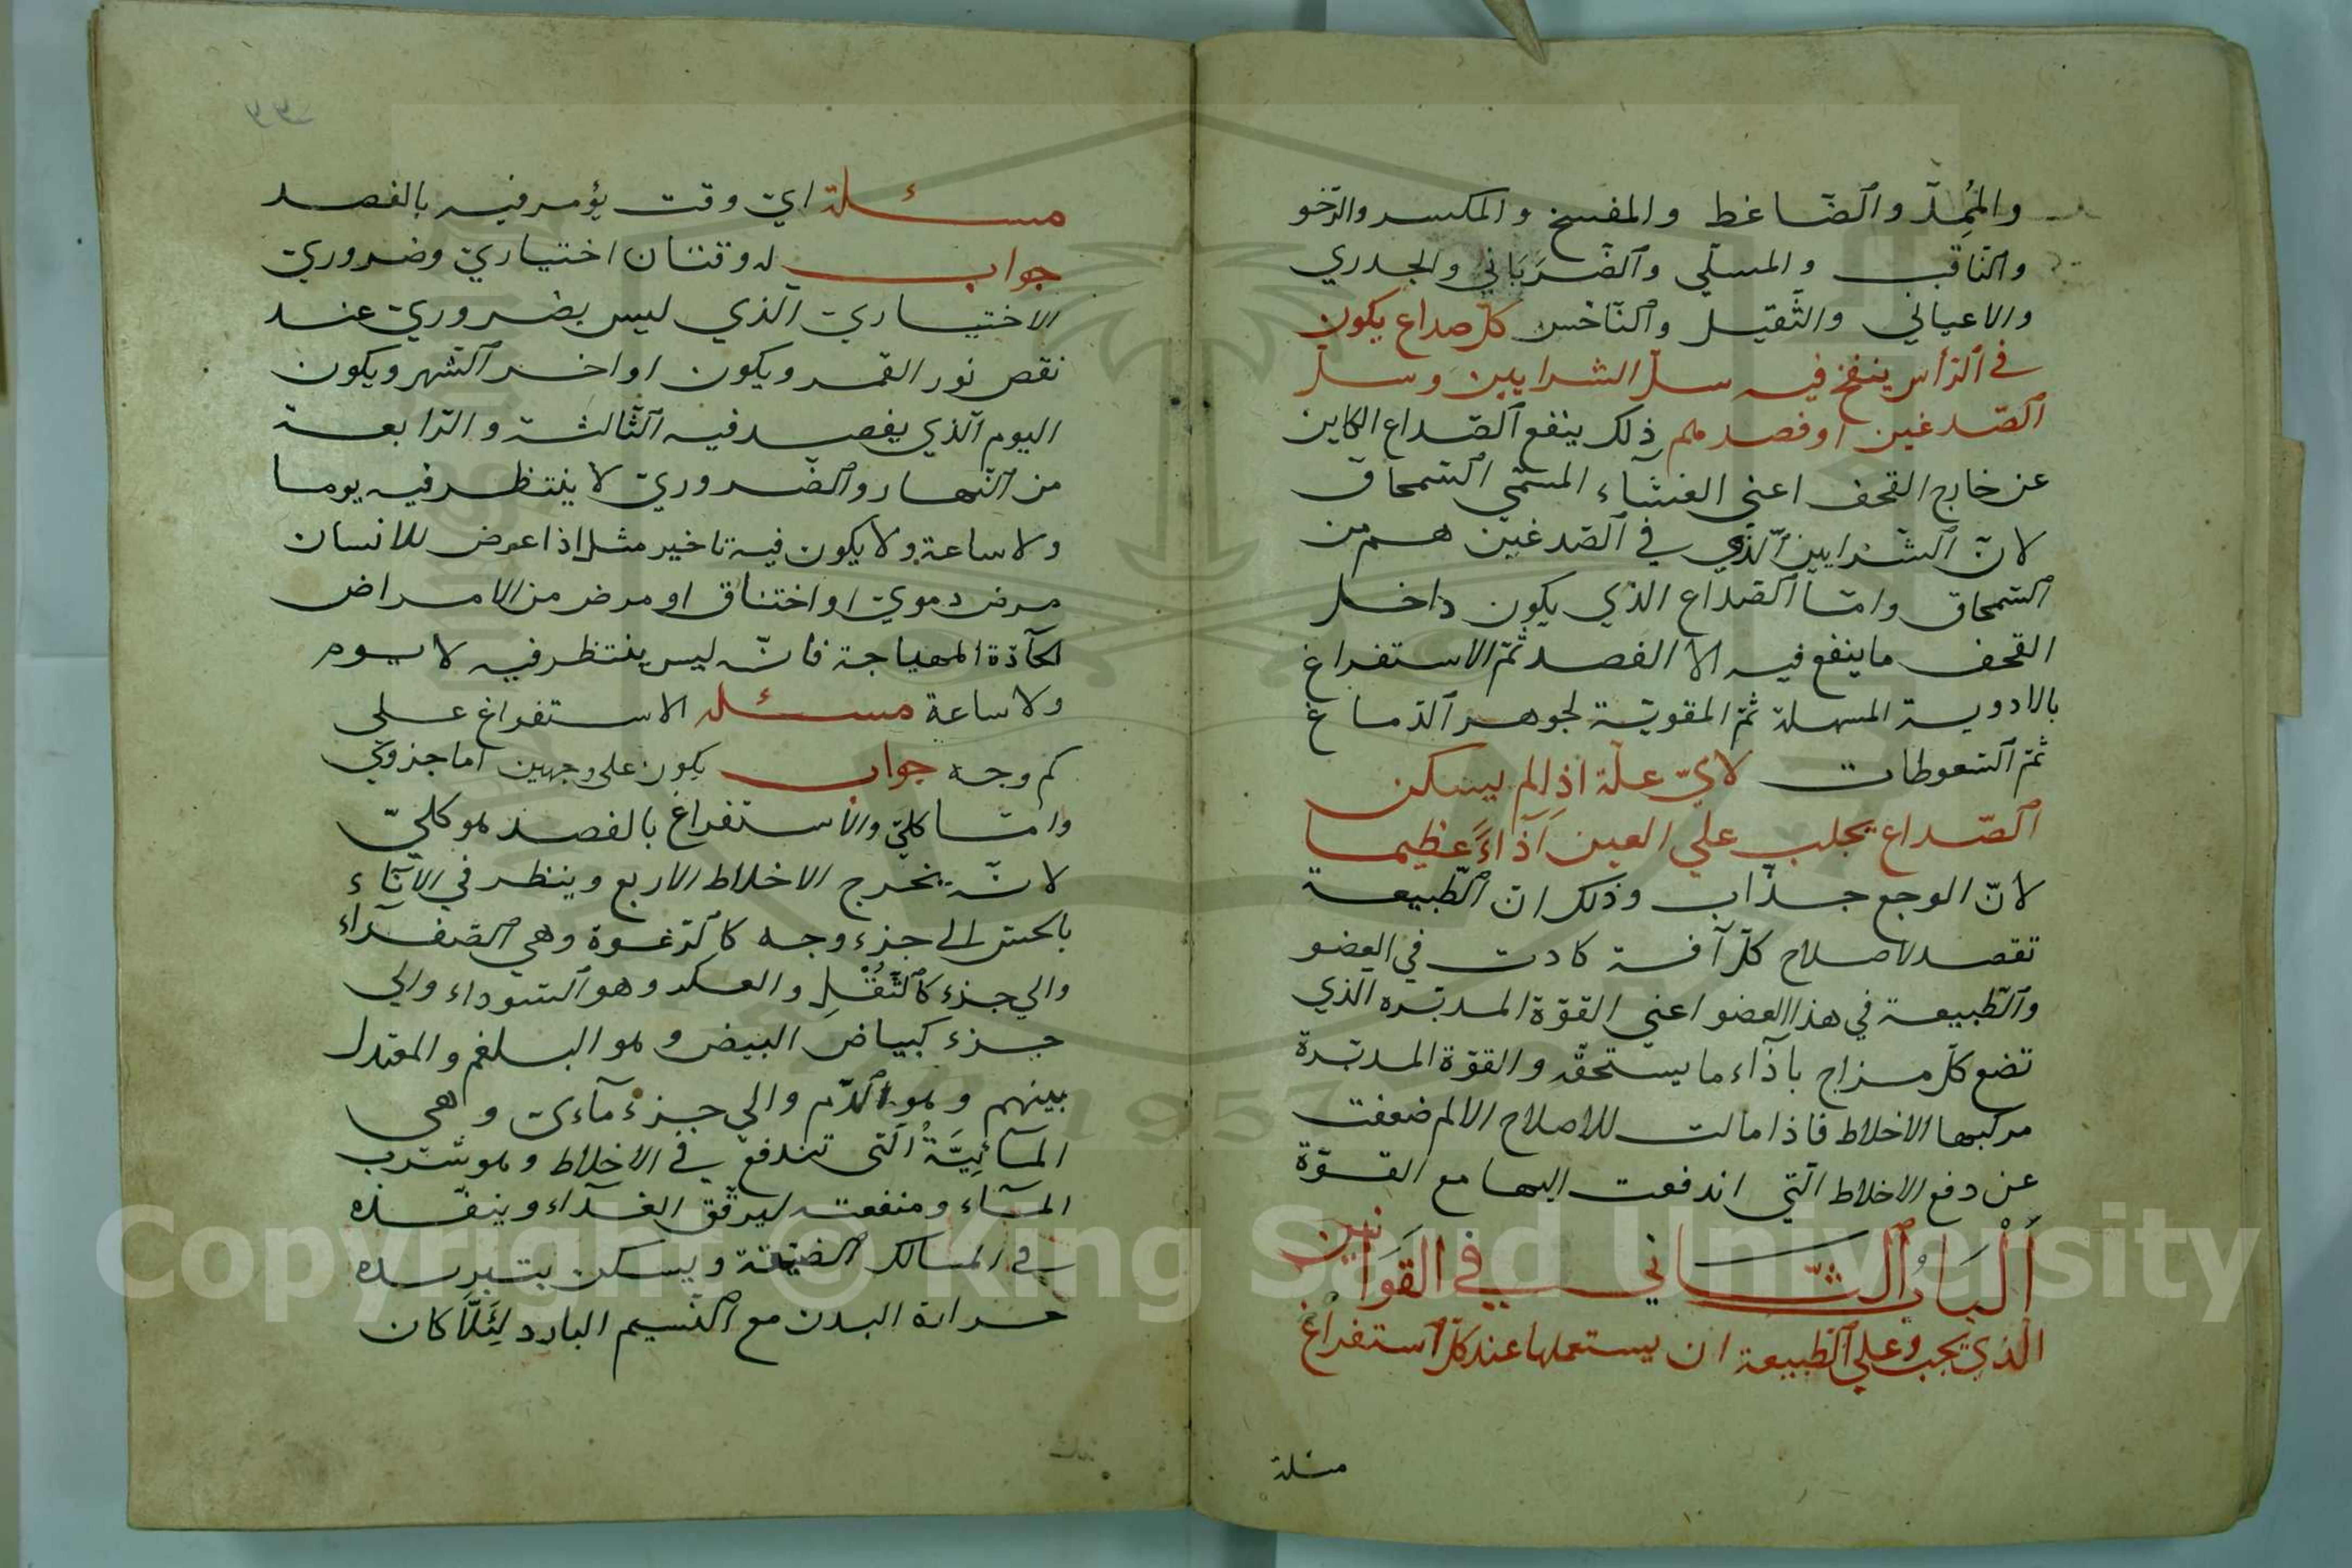 والممدّ والضّاغط والمفسخ والمكسر والرّخو
والثّاقب والمسلّي والضَّرَبَاني والجدري
والاعيائي والثّقيل والنّاخس كلّ صداع يكون
في الرّأس ينفخ فيه سلّ الشرايين وسلّ
الصّدغين او فصدهم ذلك ينفع الصّداع الكاين
عن خارج القحف اعني الغشاء المسمّى السّمحاق
لانّ الشّرايين الّذي في الصّدغين هم من
السّمحاق وامّا الصّداع الذي يكون داخل
القحف ما ينفع فيه الا الفصد ثمّ الاستفراغ
بالادوية المسهلة ثمّ المقويّة لجوهر الدّماغ
ثمّ السّعوطات لايّ علّة اذا لم يسكن
الصّداع يجلب علي العين آذاءً عظيما
لانّ الوجع جذّاب وذلك انّ الطّبيعة
تقصد لاصلاح كلّ آفة كادت في العضو
والطّبيعة في هذا العضو اعني القوّة المدبّره الذي
تضع كلّ مزاج بآذاء ما يستحقّه والقوّة المدبّرة
مركبها الاخلاط فاذا مالت للاصلاح الالم ضعفت
عن دفع الاخلاط الّتي اندفعت اليها مع القوّة
اَلْبَابُ الثّاني في القَوَانين
الّذي يجب علي الطّبيعة ان يستعملها عند كلّ استفراغ
مسئلة
مسئلة ايّ وقت يؤمر فيه بالفصد
جواب له وقتان اختياريّ وضروريّ
الاختياريّ الّذي ليس بضروريّ عند
نقص نور القمر ويكون اواخر الشّهر ويكون
اليوم الّذي يفصد فيه الثّالثة والرّابعة
من النّهار والضّروريّ لا ينتظر فيه يوما
ولا ساعة ولا يكون فيه تاخير مثل اذا عرض للانسان
مرض دمويّ او اختناق او مرض من الامراض
الحآدّة المهياجة فانّه ليس ينتظر فيه لا يوم
ولا ساعة مسئله الاستفراغ علي
كم وجه جواب يكون علي وجهين امّا جزويّ
وامّا كليّ والاستفراغ بالفصد هو كليّ
لانّه يخرج الاخلاط الاربع وينظر في الانآء
بالحسّ الي جزء وجه كالرّغوة وهي الصّفرآء
والي جزء كالثُّقْلِ والعكر وهو السّوداء والي
جزء كبياض البيض وهو البلغم والمعتدل
بينهم وهو الدّم والي جزء مآءيّ وهي
المآئِيَّةُ الّتي تندفع في الاخلاط وهو شرب
المآء ومنفعته ليرقّق الغذآء وينفّذه
في المسالك الضيّقة ويسكن بتبريده
حرارة البدن مع النّسيم البارد لِئَلّا كان